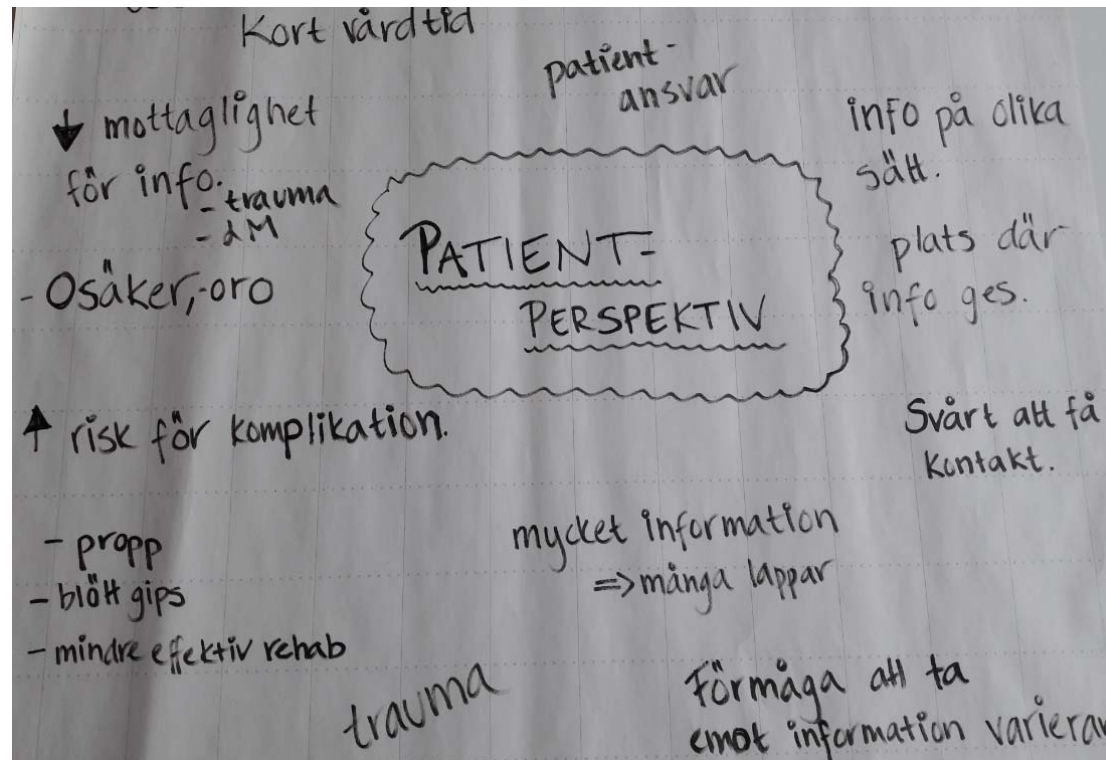 Kort vårdtid
patient-
ansvar
↓ mottaglighet
för info.
- trauma
- LM
- Osäker,-oro
info på olika
sätt.
plats där
info ges.
PATIENT=
PERSPEKTIV
↑ risk för komplikation.
Svårt att få
kontakt.
- propp
- blött gips
- mindre effektiv rehab
mycket information
=> många lappar
trauma
Förmåga att ta
emot information varierar